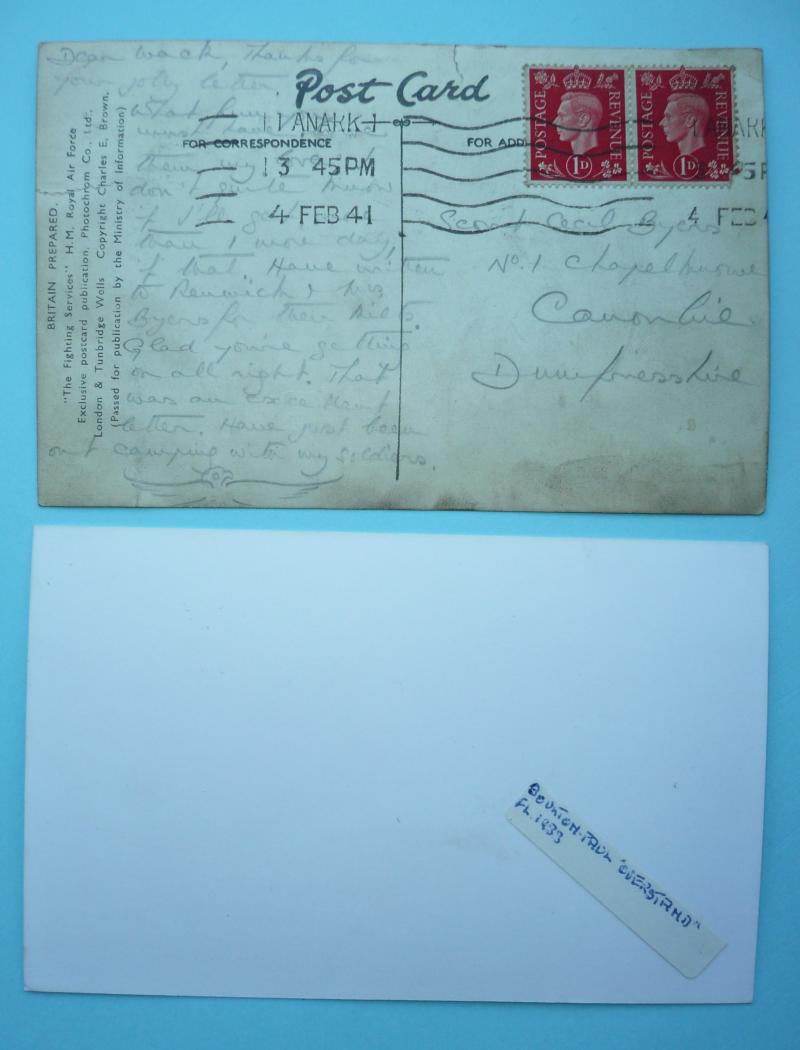 Post Card
FOR CORRESPONDENCE
FOR ADD
LANARK
1 45 PM
4 FEB 41
POSTAGE REVENUE
1D
POSTAGE REVENUE
1D
LANARK
4 FEB 4
BRITAIN PREPARED.
"The Fighting Services" H.M. Royal Air Force
Exclusive postcard publication, Photochrom Co., Ltd.,
London & Tunbridge Wells Copyright Charles E. Brown.
(Passed for publication by the Ministry of Information)
Dear Wack, Thanks for
your jolly letter
what fun
must have
them my love. I
don't quite know
if I'll get
than 1 more day,
if that. Have written
to Renwick & Mrs
Byers for their kilts.
Glad you're getting
on all right. That
was an letter. Have just been
out camping with my soldiers.
Scout Cecil Byers
No. 1 Chapelknowe
Canonbie
Dumfriesshire
BOULTON-PAUL "OVERSTRAND"
FL. 1933